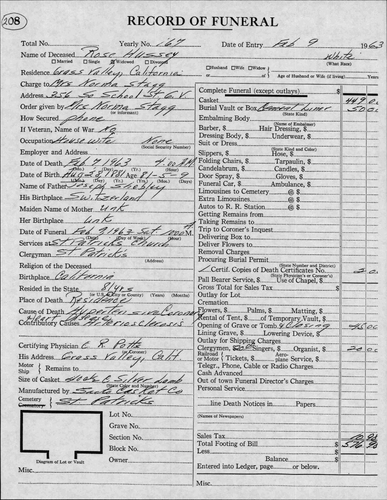 208
RECORD OF FUNERAL
Total No. Yearly No. 167 Date of Entry Feb 9 1963
Name of Deceased Rose Hussey White
Married Single Widowed Divorced Husband Wife Widow (What Race)
Residence Grass Valley, California Age of Husband or Wife (if living) Years
Charge to Mrs Norma Stagg
Address 356 So School St G.V.
Order given by Mrs Norma Stagg
(or informant)
How Secured phone
If Veteran, Name of War No
Occupation Housewife None
(Social Security Number)
Employer and Address
Date of Death Feb 7, 1963 4:00 A.M.
Date of Birth Aug 28 1881 81-5-9
Name of Father Joseph
His Birthplace Switzerland
Maiden Name of Mother Unk
Her Birthplace Unk
Date of Funeral Feb 9, 1963 Sat M
Services at St Patricks Church
Clergyman St Patricks
Religion of the Deceased
Birthplace California
Resided in the State 81 yrs
(or U.S. City or County) (Years) (Months)
Place of Death Residence
Cause of Death Hypertensive Coronary
Heart
Contributory Causes Arteriosclerosis
Certifying Physician C R Potts
His Address Grass Valley, Calif
Motor
Ship Remains to
Size of Casket Silver
Manufactured by Casket Co
Cemetery
St Patricks
Lot No.
Grave No.
Section No.
Block No.
Owner
Diagram of Lot or Vault
Misc.
Complete Funeral (except outlays) $
Casket 449.00
Burial Vault or Box Cement Liner 50.00
(State Kind)
Embalming Body
(Name of Embalmer)
Barber, $ Hair Dressing, $
Dressing Body, $ Underwear, $
Suit or Dress
(State Kind and Color)
Slippers, $ Hose, $
Folding Chairs, $ Tarpaulin, $
Candelabrum, $ Candles, $
Door Spray, $ Gloves, $
Funeral Car, $ Ambulance, $
Limousines to Cemetery @ $
Extra Limousines @ $
Autos to R. R. Station @ $
Getting Remains from
Taking Remains to
Trip to Coroner's Inquest
Delivering Box to
Deliver Flowers to
Removal Charges
Procuring Burial Permit
(State Number and District)
1 Certif. Copies of Death Certificates No. 2.00
(State Physician's or Coroner's)
Pall Bearer Service, $ Use of Chapel, $
Gross Total for Sales Tax $
Outlay for Lot
Cremation
Flowers, $ Palms, $ Matting, $
Rental of Tent, $ of Temporary, Vault, $
Opening of Grave or Tomb & Closing 45.00
Lining Grave, $ Lowering Device, $
Outlay for Shipping Charges
Clergyman, $ Singers, $ Organist, $ 20.00
Railroad
Motor Tickets, $ Aero-
plane Service, $
Telegr., Phone, Cable or Radio Charges
Cash Advanced
Out of town Funeral Director's Charges
Personal Service
line Death Notices in Papers
(Names of Newspapers)
Sales Tax
Total Footing of Bill $
Less
Balance $
Entered into Ledger, page or below.
Misc.